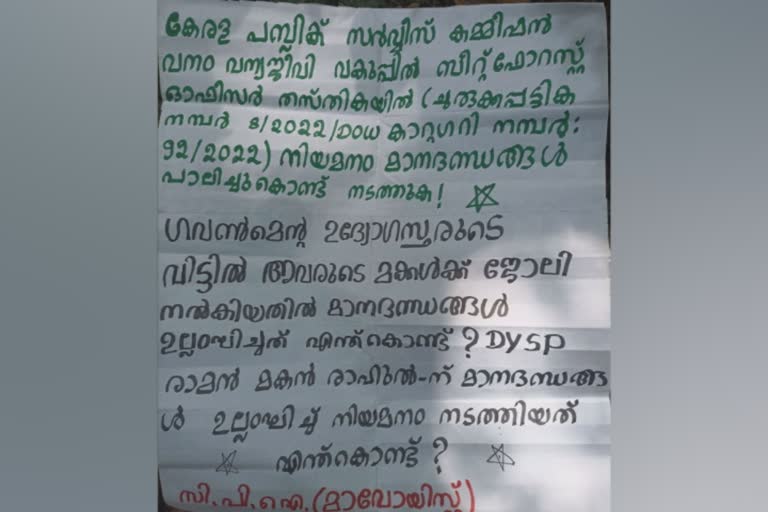 കേരള പബ്ലിക് സർവ്വീസ് കമ്മീഷൻ
വനം വന്യജീവി വകുപ്പിൽ ബീറ്റ് ഫോറസ്റ്റ്
ഓഫീസർ തസ്തികയിൽ (ചുരുക്കപ്പട്ടിക
നമ്പർ 8/2022/DOW കാറ്റഗറി നമ്പർ:
92/2022) നിയമനം മാനദണ്ഡങ്ങൾ
പാലിച്ചുകൊണ്ട് നടത്തുക!
ഗവൺമെന്റ് ഉദ്യോഗസ്ഥരുടെ
വിട്ടിൽ അവരുടെ മക്കൾക്ക് ജോലി
നൽകിയതിൽ മാനദണ്ഡങ്ങൾ
ഉല്ലംഘിച്ചത് എന്ത്കൊണ്ട്? DYSP
രാമൻ മകൻ രാഹുൽ-ന് മാനദണ്ഡങ്ങ
ൾ ഉല്ലംഘിച്ച് നിയമനം നടത്തിയത്
എന്ത്കൊണ്ട്?
സി.പി.ഐ.(മാവോയിസ്റ്റ്)